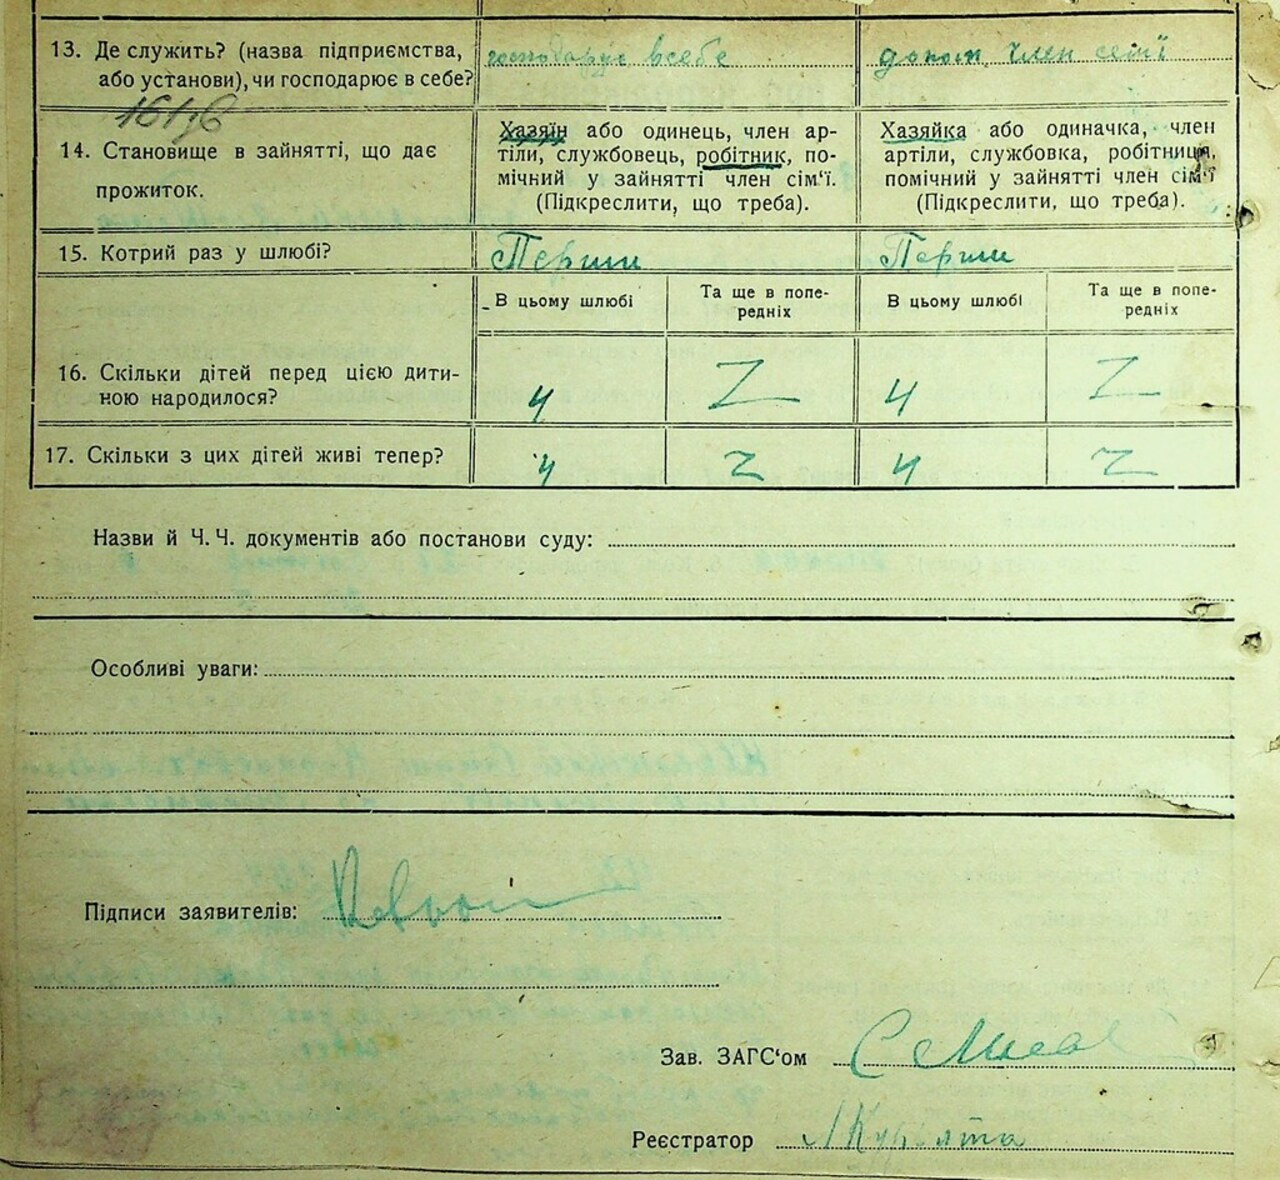 13. Де служить? (назва підприємства, або установи), чи господарює в себе?
господарує в себе
допом. член сем'ї
14. Становище в зайнятті, що дає прожиток.
Хазяїн або одинець, член ар-
тіли, службовець, робітник, по-
мічний у зайнятті член сім'ї.
(Підкреслити, що треба).
Хазяйка або одиначка, член
артіли, службовка, робітниця,
помічний у зайнятті член сім'ї
(Підкреслити, що треба).
15. Котрий раз у шлюбі?
Перший
Перший
В цьому шлюбі
Та ще в попе-
редніх
В цьому шлюбі
Та ще в попе-
редніх
16. Скільки дітей перед цією дити-
ною народилося?
4
4
17. Скільки з цих дітей живі тепер?
4
4
Назви й Ч. Ч. документів або постанови суду:
Особливі уваги:
Підписи заявителів:
Зав. ЗАГС'ом
Реєстратор